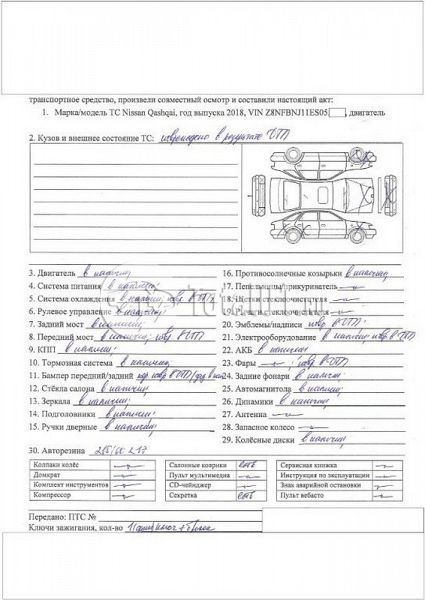 транспортное средство, произвели совместный осмотр и составили настоящий акт:
1. Марка/модель ТС Nissan Qashqai, год выпуска 2018, VIN Z8NFBNJ11ES05, двигатель
2. Кузов и внешнее состояние ТС: повреждено в результате ДТП
3. Двигатель в наличии
16. Противосолнечные козырьки в наличии
4. Система питания в наличии
17. Пепельницы/прикуриватель
5. Система охлажден в наличии, повр в ДТП
6. Рулевое управление в наличии
7. Задний мост в наличии
20. Эмблемы/надписи повр в ДТП
8. Передний мост в наличии, повр в ДТП
21. Электрооборудование в наличии повр в ДТП
9. КПП в наличии
22. АКБ в наличии
10. Тормозная система в наличии
23. Фары повр в ДТП
11. Бампер передний/задний
24. Задние фонари в наличии
12. Стёкла салона в наличии
25. Автомагнитола в наличии
13. Зеркала в наличии
26. Динамики в наличии
14. Подголовники в наличии
27. Антенна
15. Ручки дверные в наличии
28. Запасное колесо
29. Колёсные диски в наличии
30. Авторезина
Колпаки колёс
Салонные коврики есть
Сервисная книжка
Домкрат
Пульт мультимедиа
Инструкция по эксплуатации
Комплект инструментов
CD-чейнджер
Знак аварийной остановки
Компрессор
Секретка есть
Пульт вебасто
Передано: ПТС №
Ключи зажигания, кол-во